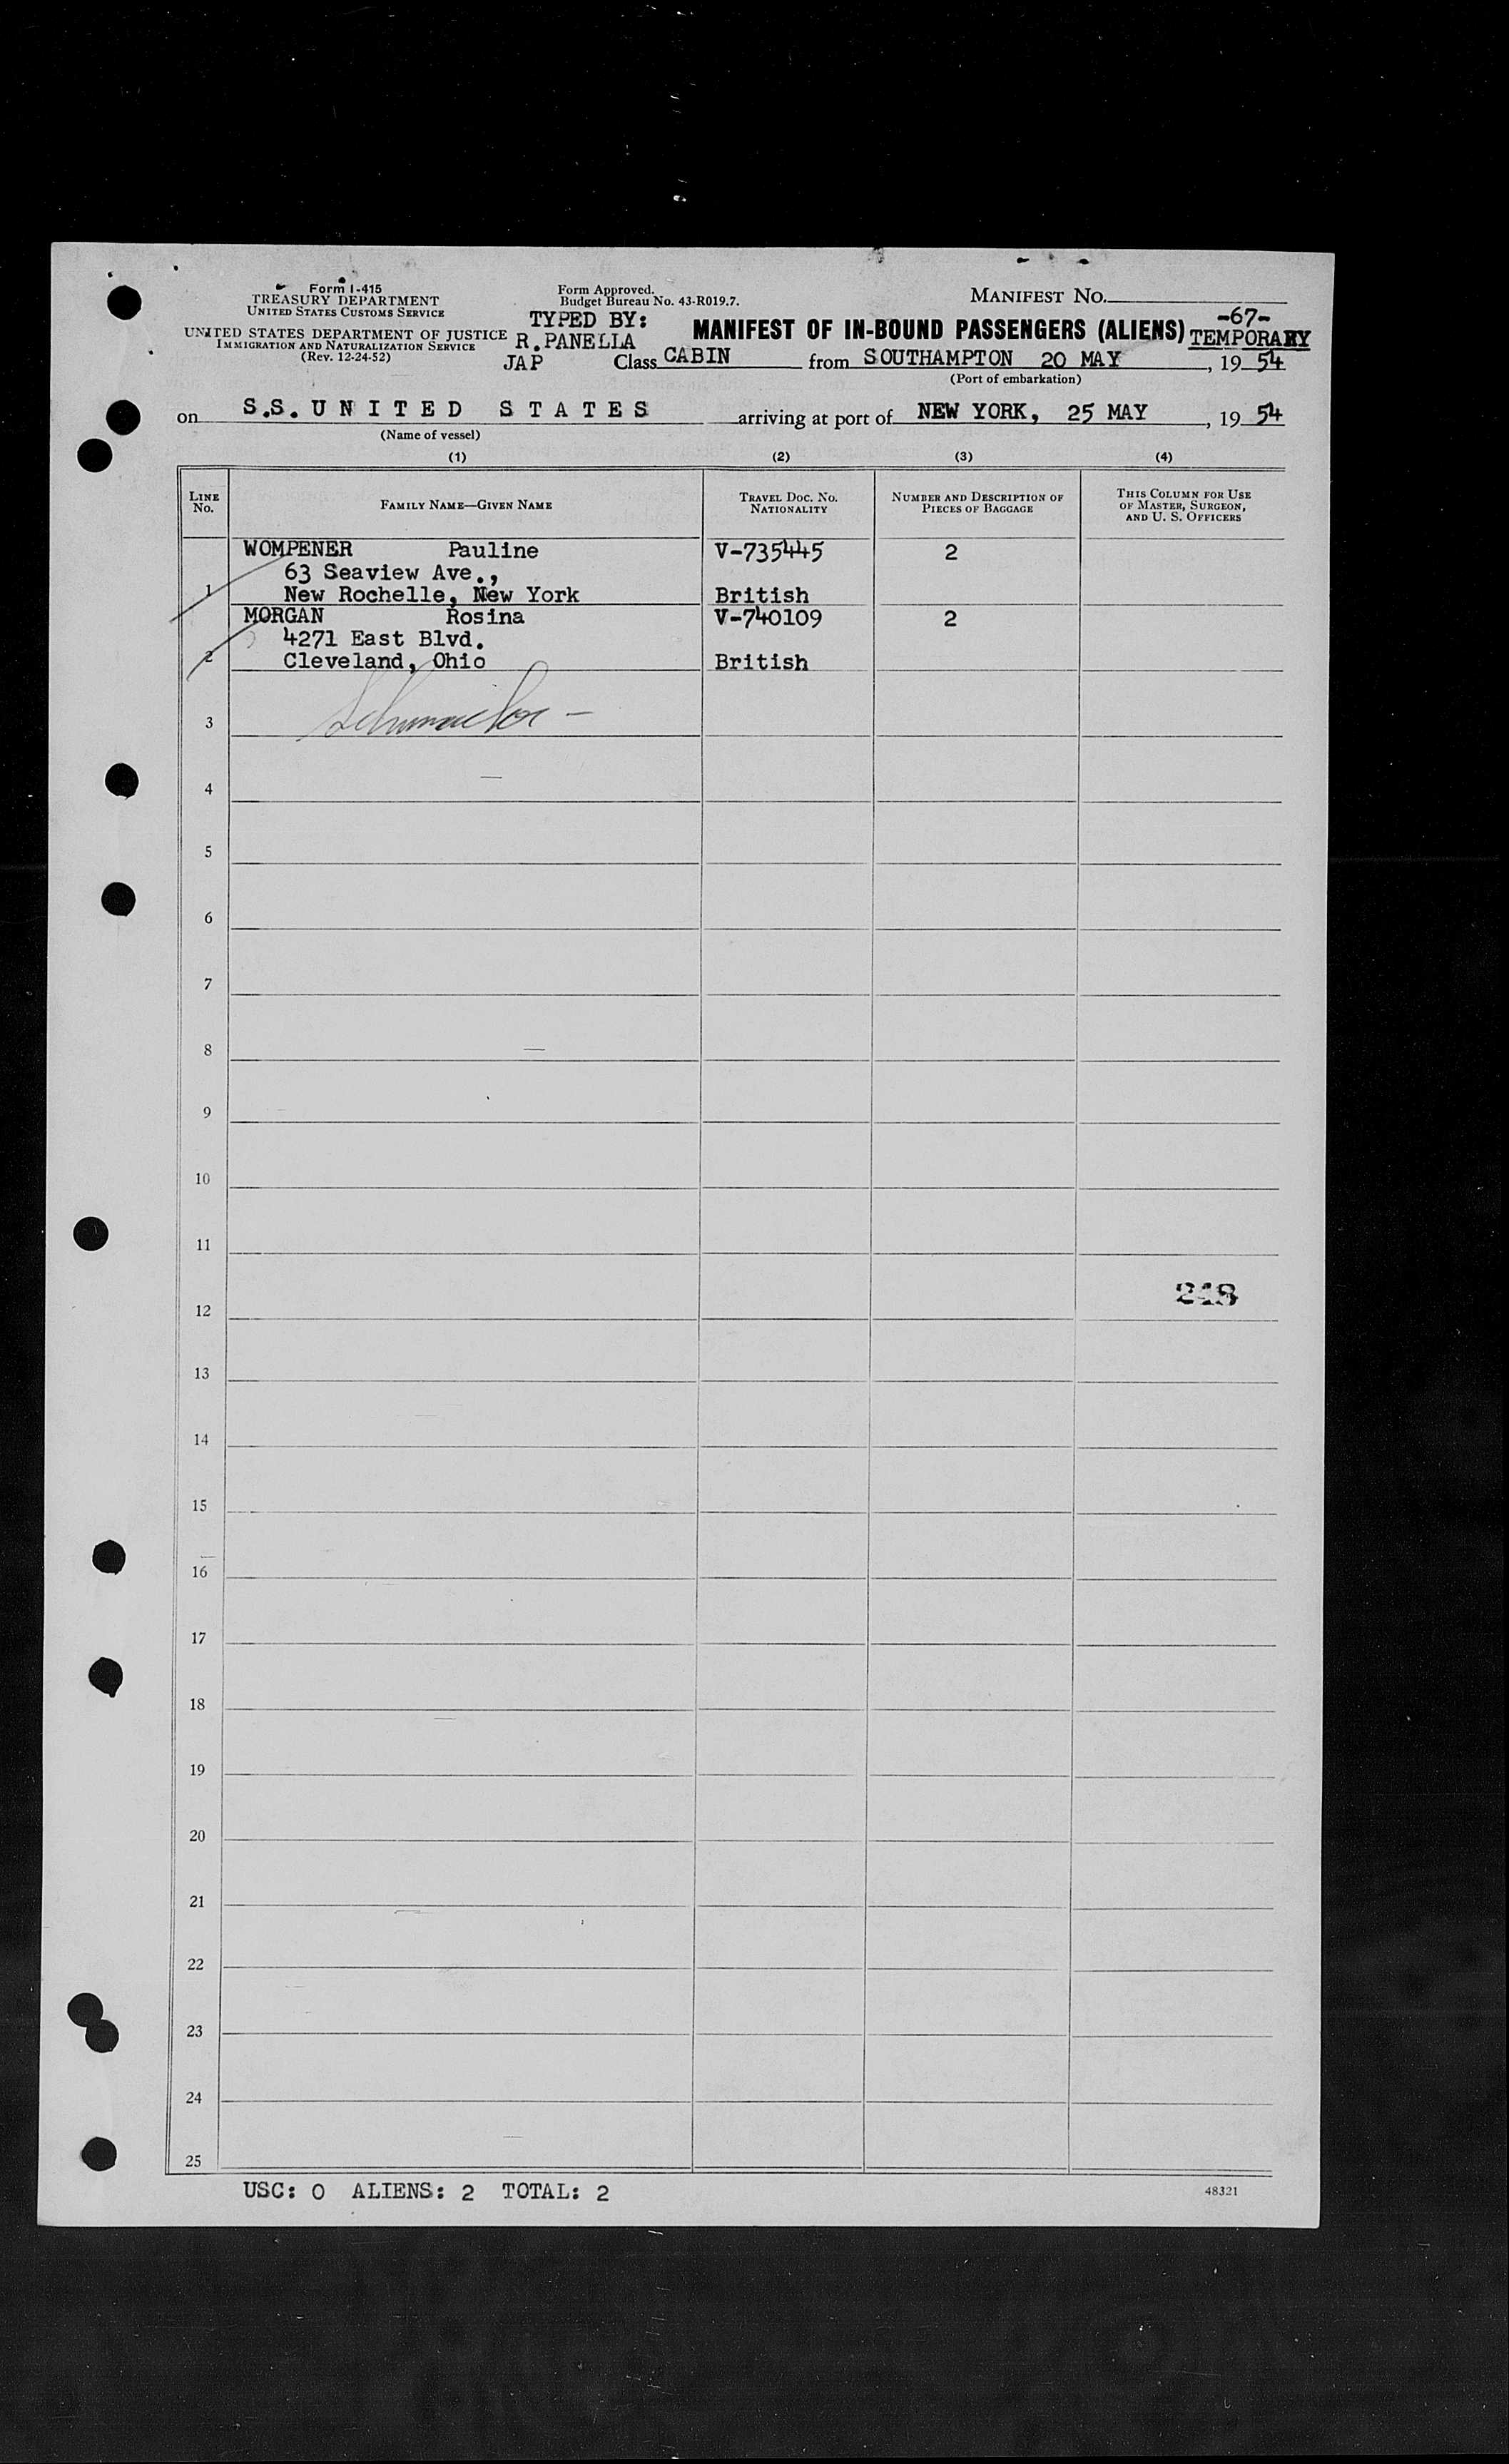 Form I-415
TREASURY DEPARTMENT
UNITED STATES CUSTOMS SERVICE
UNITED STATES DEPARTMENT OF JUSTICE
IMMIGRATION AND NATURALIZATION SERVICE
(Rev. 12-24-52)
Form Approved.
Budget Bureau No. 43-R019.7.
TYPED BY:
R.PANELLA
JAP
MANIFEST NO.
-67-
MANIFEST OF IN-BOUND PASSENGERS (ALIENS) TEMPORARY
Class CABIN from SOUTHAMPTON 20 MAY, 19 54
(Port of embarkation)
on S.S. UNITED STATES arriving at port of NEW YORK, 25 MAY, 19 54
(Name of vessel)
(1) (2) (3) (4)
LINE NO. FAMILY NAME—GIVEN NAME TRAVEL DOC. NO. NATIONALITY NUMBER AND DESCRIPTION OF PIECES OF BAGGAGE THIS COLUMN FOR USE OF MASTER, SURGEON, AND U. S. OFFICERS
WOMPENER Pauline V-735445 2
63 Seaview Ave.,
1 New Rochelle, New York British
MORGAN Rosina V-740109 2
4271 East Blvd.
2 Cleveland, Ohio British
3
4
5
6
7
8
9
10
11
248
12
13
14
15
16
17
18
19
20
21
22
23
24
25
USC: 0 ALIENS: 2 TOTAL: 2
48321